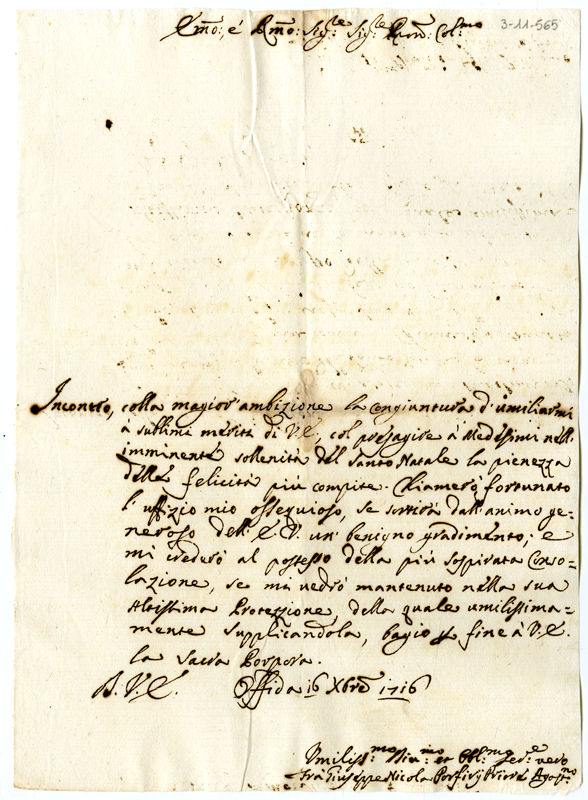 Emo: é Rmo: Sigre Sigre Pron: Colmo
3-11-565
Incontro, colla magior'ambizione la congiuntura d'umiliarmi
à sublimi meriti di V.E., col presagire à Medesimi nell'
imminente sollenità del Santo Natale la pienezza
delle felicità più compite. Chiamerò fortunato
l'uffizio mio ossequioso, se sortirà dall'animo ge=
neroso dell'E.V. un'benigno gradimento; e
mi crederò al possesso della più sospirata Conso=
lazione, se mi vedrò mantenuto nella sua
Altissima Protezzione, della quale umilissima=
mente supplicandola, bagio p fine à V.E.
la Sacra Porpora.
D.V.E. Offida 16 Xbre 1716
Umilissmo Divmo et Obblmo Serve vero
Frà Giuseppe Nicola Porfirij Prior Agostno